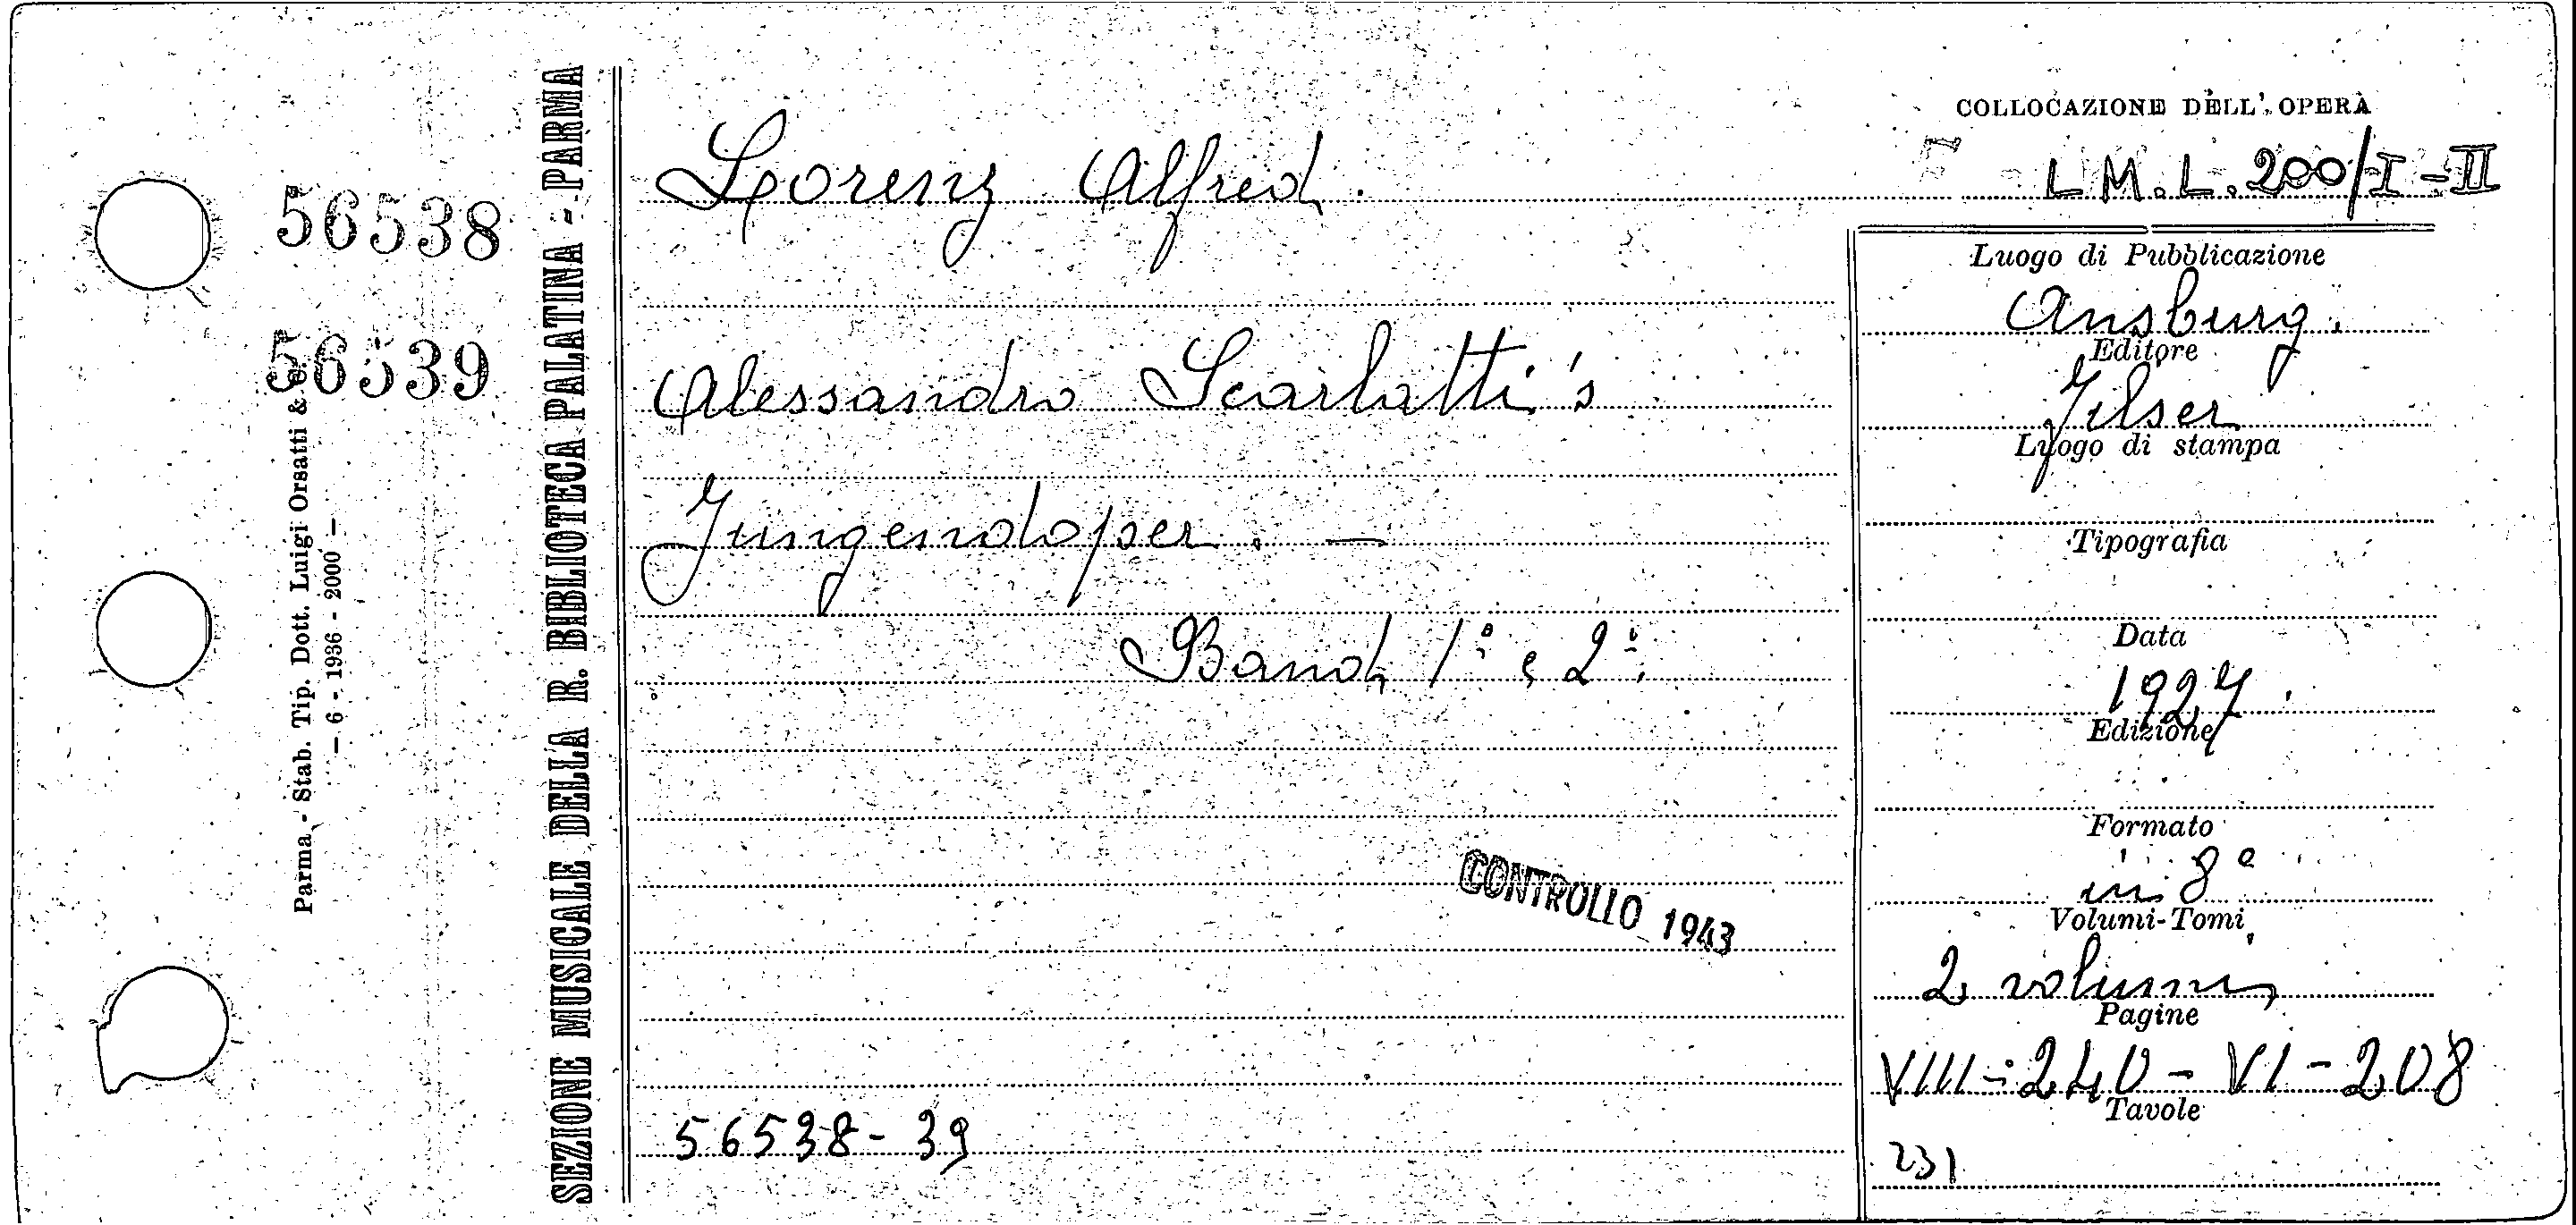 56538
56539
Parma - Stab. Tip. Dott. Luigi Orsatti &
— 6 - 1936 - 2000 —
SEZIONE MUSICALE DELLA R. BIBLIOTECA PALATINA - PARMA
Lorenz Alfred.
Alessandro Scarlatti's
Jungendoper. —
Band 1° e 2°.
CONTROLLO 1943
56538-39
COLLOCAZIONE DELL'OPERA
L M. L. 200/I-II
Luogo di Pubblicazione
Ansburg.
Editore
Filser
Luogo di stampa
Tipografia
Data
1927.
Edizione
Formato
in 8°
Volumi-Tomi
2 volumi
Pagine
VIII-240-VI-208
Tavole
231